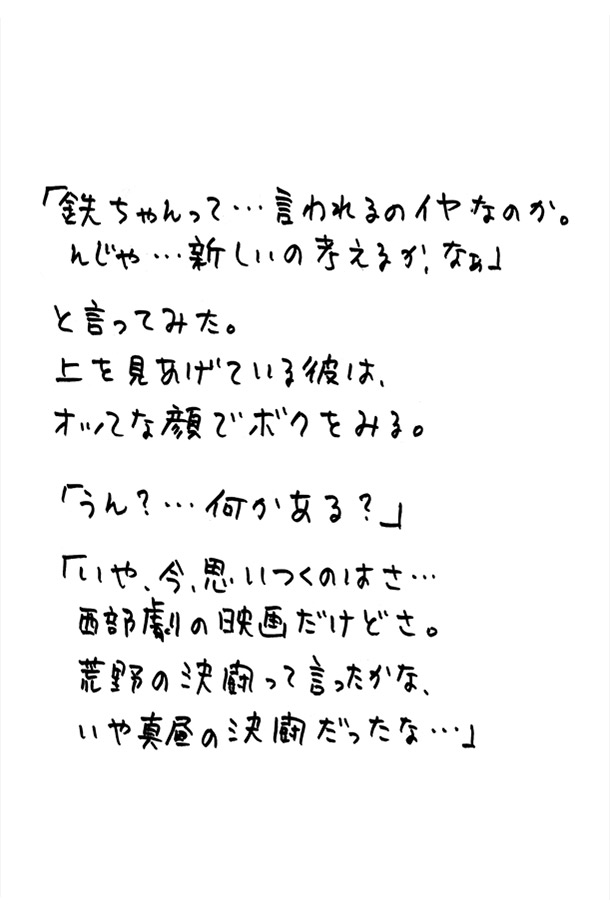 「鉄ちゃんって…言われるのイヤなのか。
んじゃ…新しいの考えるか、なぁ」
と言ってみた。
上を見あげている彼は、
オツな顔でボクをみる。
「うん？…何かある？」
「いや、今、思いつくのはさ…
西部劇の映画だけどさ。
荒野の決闘って言ったかな、
いや真昼の決闘だったな…」